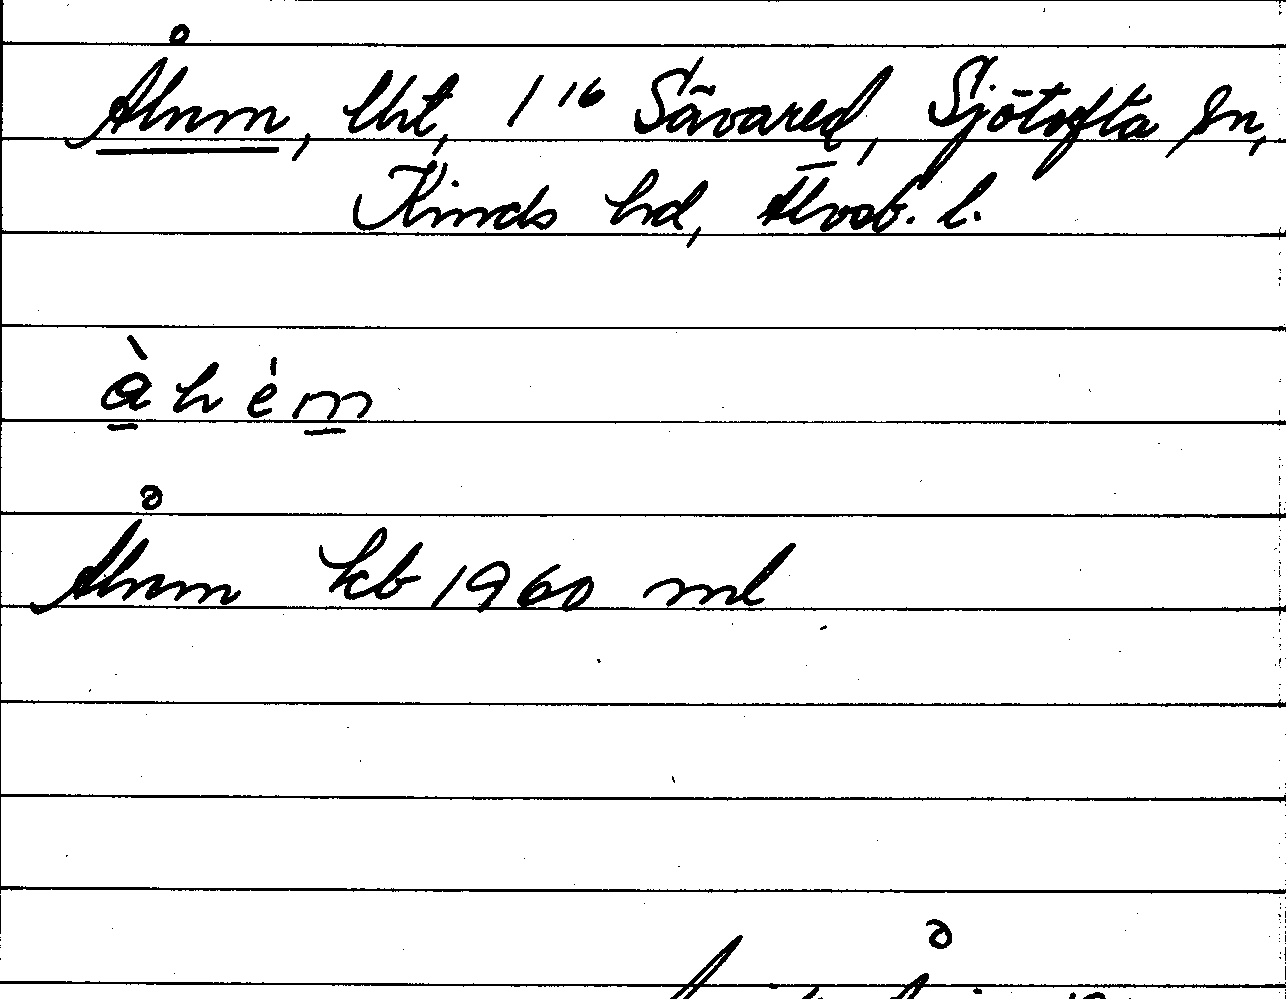 Åhem, lht, 1¹⁶ Sävared, Sjötofta sn,
Kinds hd, Älvsb. l.
àhèm
Åhem kb 1960 ml